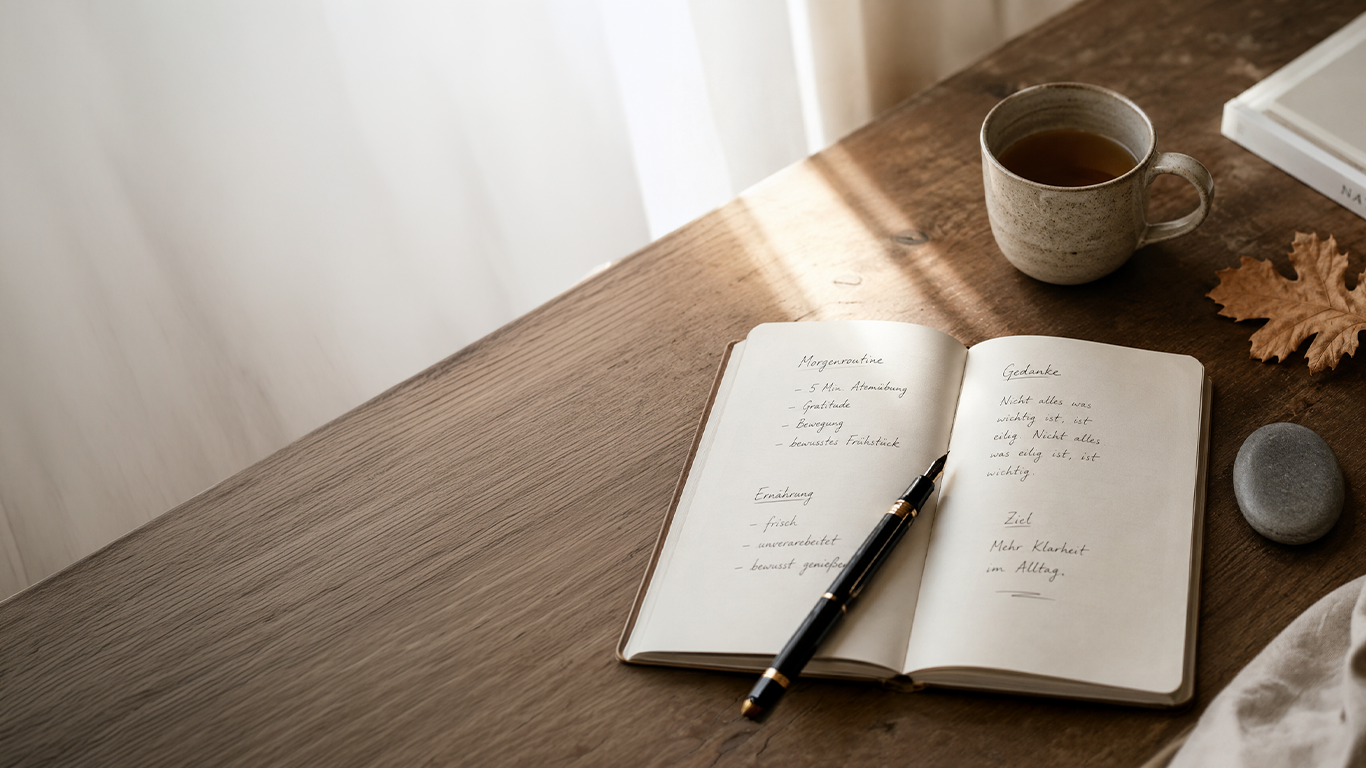 Morgenroutine
– 5 Min. Atemübung
– Gratitude
– Bewegung
– bewusstes Frühstück
Ernährung
– frisch
– unverarbeitet
– bewusst genießen
Gedanke
Nicht alles was
wichtig ist, ist
eilig. Nicht alles
was eilig ist, ist
wichtig.
Ziel
Mehr Klarheit
im Alltag.
NA